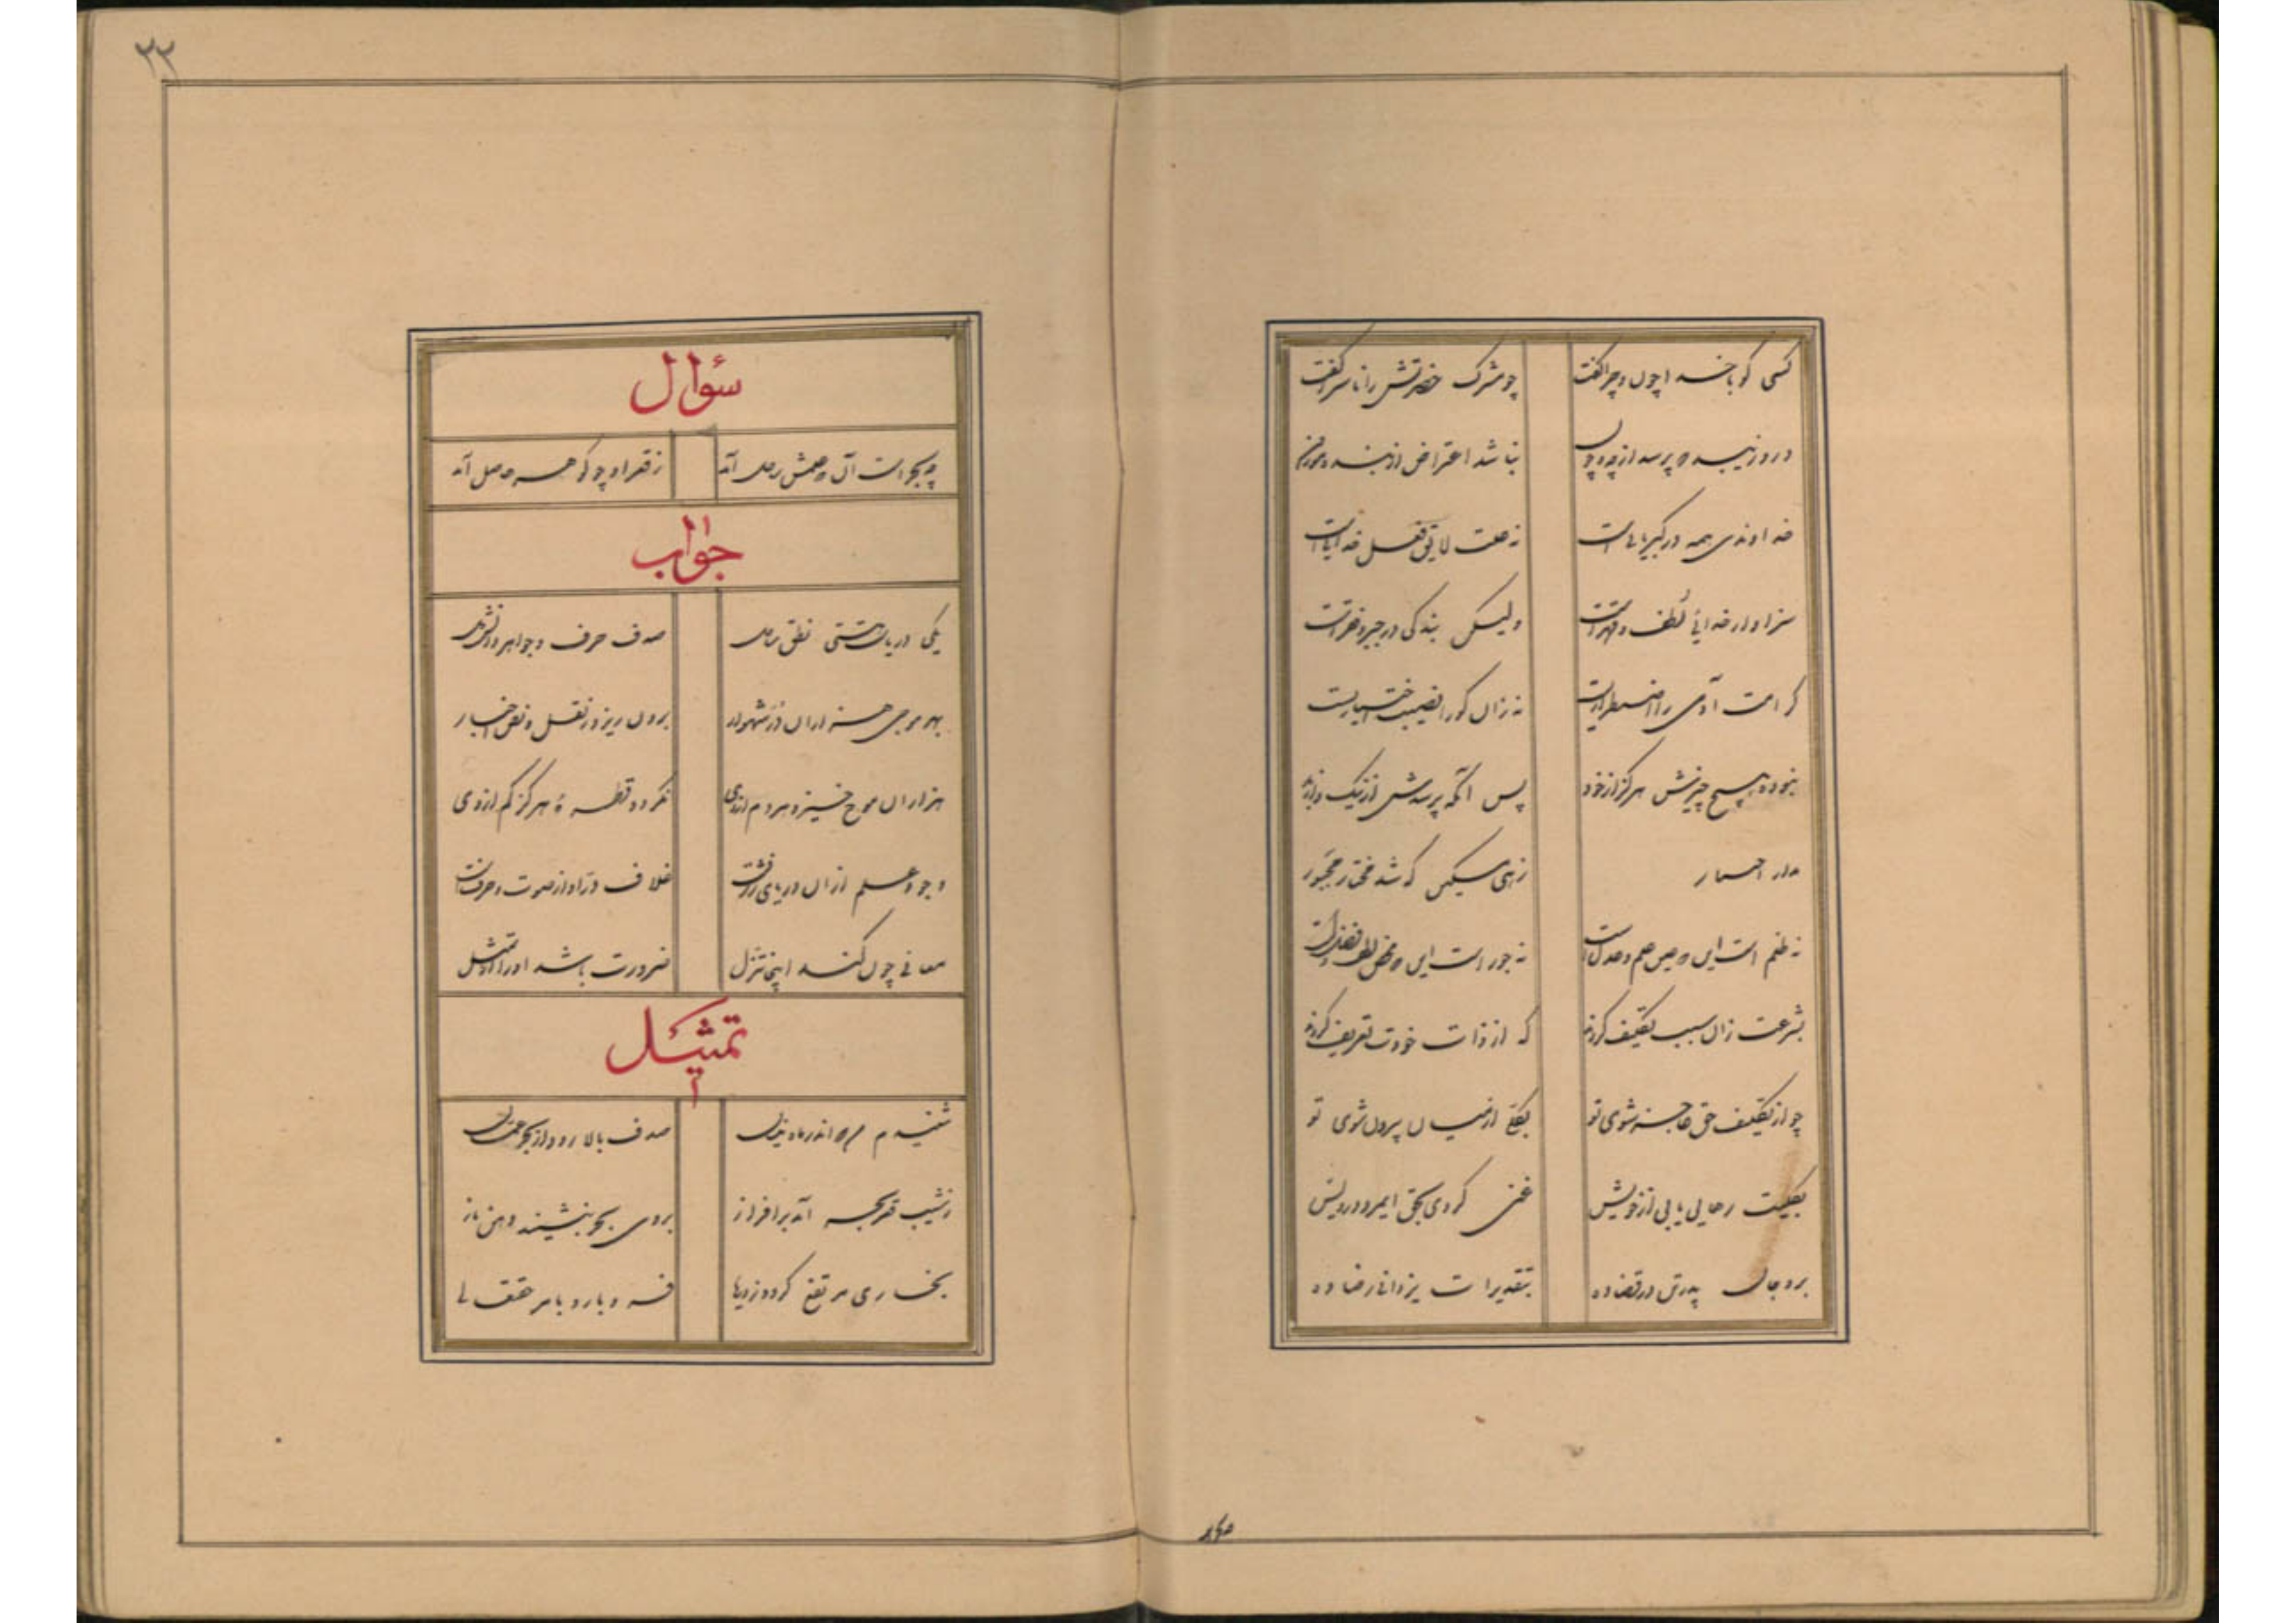 کسی کو با خدا چون و چرا گفت چو مشرک حضرتش را ناسزا گفت
درو زیبد که پرسد از چه و چون نباشد اعتراض از بنده موزون
خداوندی همه در کبریائی است نه علت لایق فعل خدائی است
سزاوار خدائی لطف و قهر است ولیکن بندگی در جبر و فقر است
کرامت آدمی را اضطراریست نه زان کو را نصیب اختیاریست
نبوده هیچ چیزش هرگز از خود پس آنگه پرسدش از نیک و از بد
ندارد اختیار زهی مسکین که شد مختار مجبور
نه ظلم است این که عین علم و عدل است نه جور است این که محض لطف و فضل است
بشرعت زان سبب تکلیف کردند که از ذات خودت تعریف کردند
چو از تکلیف حق عاجز شوی تو بکل از میان بیرون شوی تو
بکلیت رهایی یابی از خویش غنی گردی بحق ای مرد درویش
برو جان پدر تن در قضا ده بتقدیرات یزدانی رضا ده
۲۲
سئوال
چه بحر است آن که علمش ساحل آمد ز قعر او چه گوهر حاصل آمد
جواب
یکی دریاست هستی نطق ساحل صدف حرف و جواهر دانش دل
بهر موجی هزاران در شهوار برون ریزد ز نقل و نص و اخبار
هزاران موج خیزد هر دم از وی نگردد قطره هرگز کم از وی
وجود علم از آن دریای ژرف است غلاف در او از صوت و حرف است
معانی چون کند اینجا تنزل ضرورت باشد او را از تمثل
تمثیل
شنیدم من که اندر ماه نیسان صدف بالا رود از بحر عمان
ز شیب قعر بحر آید برافراز بروی بحر بنشیند دهن باز
بخاری مرتفع گردد ز دریا فرو بارد بامر حق تعالی